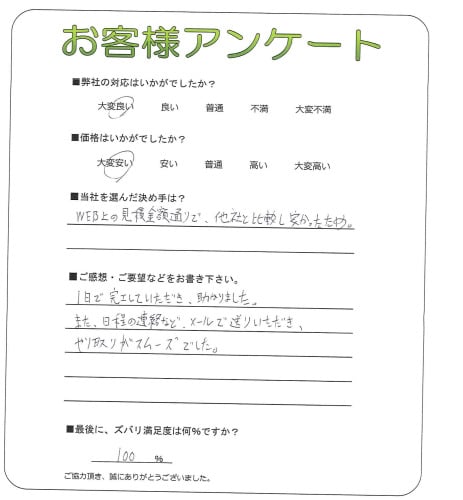 お客様アンケート
■弊社の対応はいかがでしたか?
大変良い 良い 普通 不満 大変不満
■価格はいかがでしたか?
大変安い 安い 普通 高い 大変高い
■当社を選んだ決め手は?
WEB上の見積金額通りで、他社と比較し安かったため。
■ご感想・ご要望などをお書き下さい。
1日で完工していただき、助かりました。
また、日程の連絡など、メールで送りいただき、
やり取りがスムーズでした。
■最後に、ズバリ満足度は何%ですか?
100 %
ご協力頂き、誠にありがとうございました。